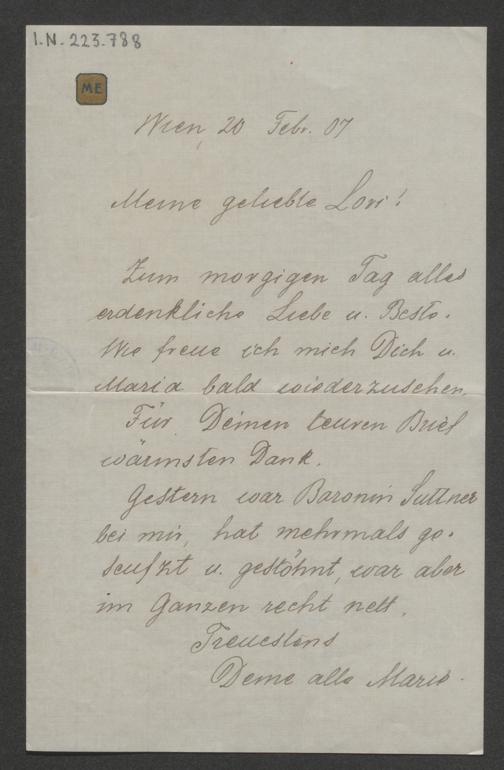 I.N. 223.788
ME
Wien, 20 Febr. 07
Meine geliebte Lori!
Zum morgigen Tag alles
erdenkliche Liebe u. Beste.
Wie freue ich mich Dich u.
Maria bald wiederzusehen.
Für Deinen teuren Brief
wärmsten Dank.
Gestern war Baronin Suttner
bei mir, hat mehrmals ge-
seufzt u. gestöhnt, war aber
im Ganzen recht nett.
Treuestens
Deine alte Marie.